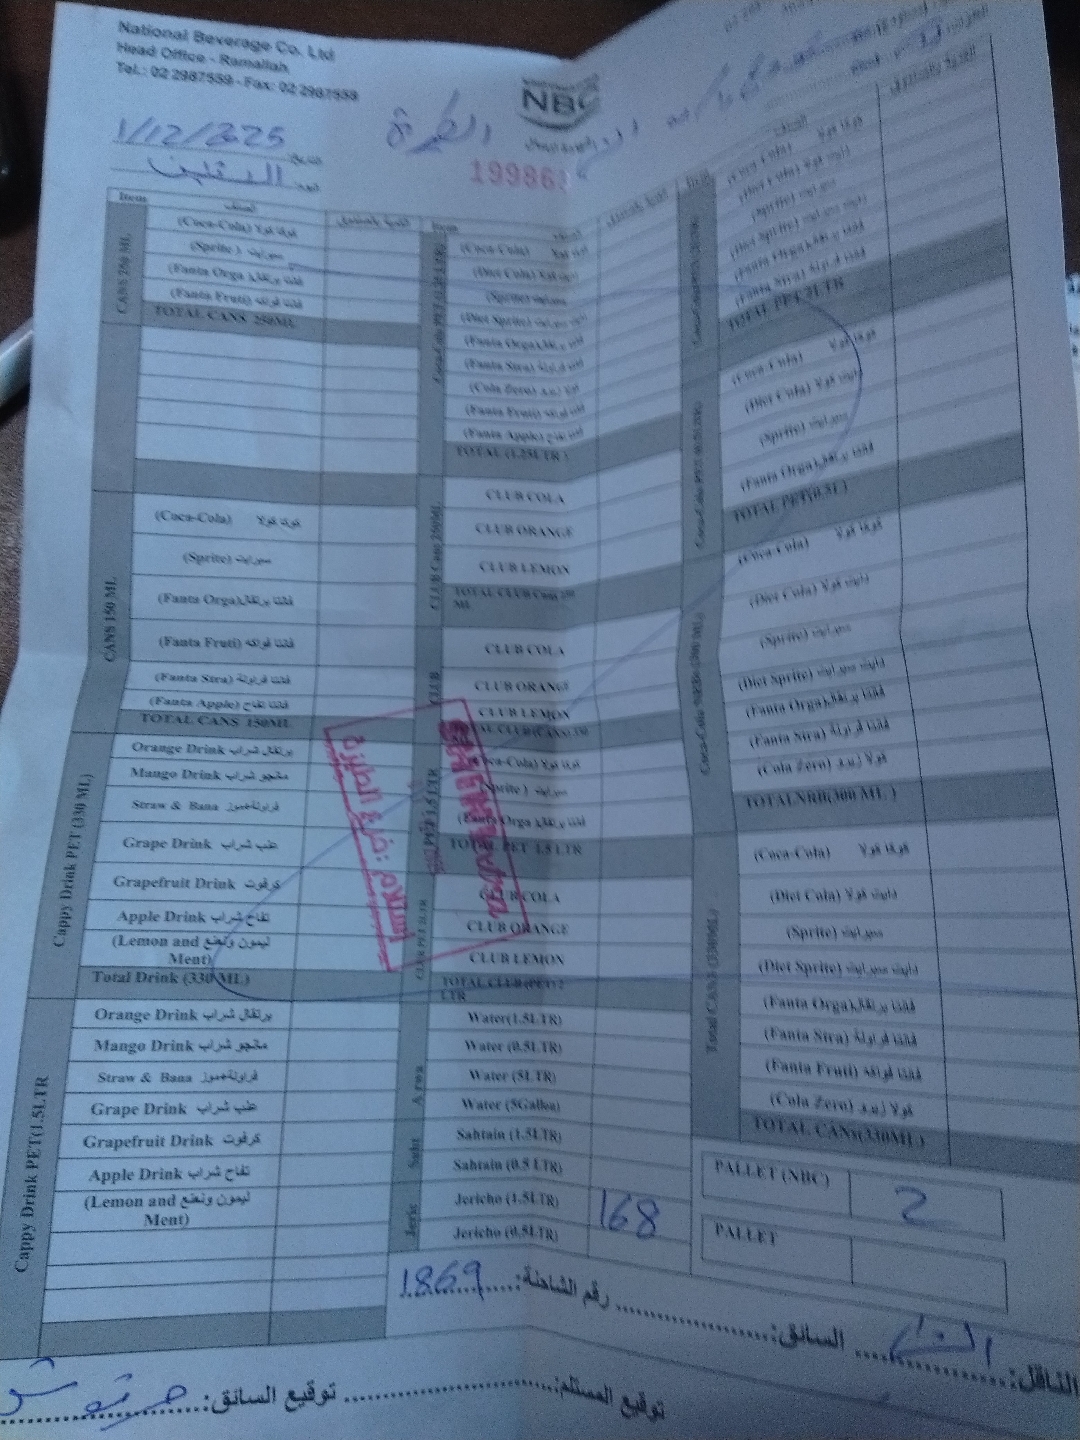 National Beverage Co. Ltd
Head Office - Ramallah
Tel.: 02 2987559 - Fax: 02 2987559
NBC
1/12/2025
19986
Item
الصنف
الكمية بالصندوق
CANS 250 ML
(Coca-Cola) كوكا كولا
(Sprite) سبرايت
(Fanta Orga) فانتا برتقال
(Fanta Fruti) فانتا فواكه
TOTAL CANS 250ML
CANS 150 ML
(Coca-Cola) كوكا كولا
(Sprite) سبرايت
(Fanta Orga) فانتا برتقال
(Fanta Fruti) فانتا فواكه
(Fanta Stra) فانتا فراولة
(Fanta Apple) فانتا تفاح
TOTAL CANS 150ML
Cappy Drink PET (330 ML)
Orange Drink برتقال شراب
Mango Drink مانجو شراب
Straw & Bana فراولة+موز
Grape Drink عنب شراب
Grapefruit Drink كرفوت
Apple Drink تفاح شراب
(Lemon and ليمون ونعنع
Ment)
Total Drink (330 ML)
Cappy Drink PET(1.5LTR
Orange Drink برتقال شراب
Mango Drink مانجو شراب
Straw & Bana فراولة+موز
Grape Drink عنب شراب
Grapefruit Drink كرفوت
Apple Drink تفاح شراب
(Lemon and ليمون ونعنع
Ment)
Item
الصنف
الكمية بالصندوق
(Coca-Cola) كوكا كولا
(Diet Cola) دايت كولا
(Sprite) سبرايت
(Diet Sprite) دايت سبرايت
(Fanta Orga) فانتا برتقال
(Fanta Stra) فانتا فراولة
(Cola Zero) كولا زيرو
(Fanta Fruti) فانتا فواكه
(Fanta Apple) فانتا تفاح
TOTAL (1.25LTR )
CLUB Cans 250ML
CLUB COLA
CLUB ORANGE
CLUB LEMON
TOTAL CLUB Cans 250
ML
CLUB COLA
CLUB ORANGE
CLUB LEMON
(Coca-Cola) كوكا كولا
(Sprite ) سبرايت
(Fanta Orga فانتا برتقال
TOTAL PET 1.5 LTR
CLUB PET 2LTR
CLUB COLA
CLUB ORANGE
CLUB LEMON
TOTAL CLUB (PET) 2
LTR
Water(1.5LTR)
Water (0.5LTR)
Water (5LTR)
Water (5Gallon)
Sahtain (1.5LTR)
Sahtain (0.5 LTR)
Jericho (1.5LTR)
Jericho (0.5LTR)
168
استلام : فرع الطيرة
(Coca-Cola) كوكا كولا
(Diet Cola) دايت كولا
(Sprite) سبرايت
(Diet Sprite) دايت سبرايت
(Fanta Orga) فانتا برتقال
(Fanta Stra) فانتا فراولة
TOTAL PET 2LTR
(Coca-Cola) كوكا كولا
(Diet Cola) دايت كولا
(Sprite) سبرايت
(Fanta Orga) فانتا برتقال
TOTAL PET(0.5L)
(Coca-Cola) كوكا كولا
(Diet Cola) دايت كولا
(Sprite) سبرايت
(Diet Sprite) دايت سبرايت
(Fanta Orga) فانتا برتقال
(Fanta Stra) فانتا فراولة
(Cola Zero) كولا زيرو
TOTALNRB(300 ML )
Total CANS (330ML)
(Coca-Cola) كوكا كولا
(Diet Cola) دايت كولا
(Sprite) سبرايت
(Diet Sprite) دايت سبرايت
(Fanta Orga) فانتا برتقال
(Fanta Stra) فانتا فراولة
(Fanta Fruti) فانتا فواكه
(Cola Zero) كولا زيرو
TOTAL CANs(330ML)
PALLET (NBC)
2
PALLET
الناقل:
السائق:
رقم الشاحنة: 1869
توقيع المستلم:
توقيع السائق: